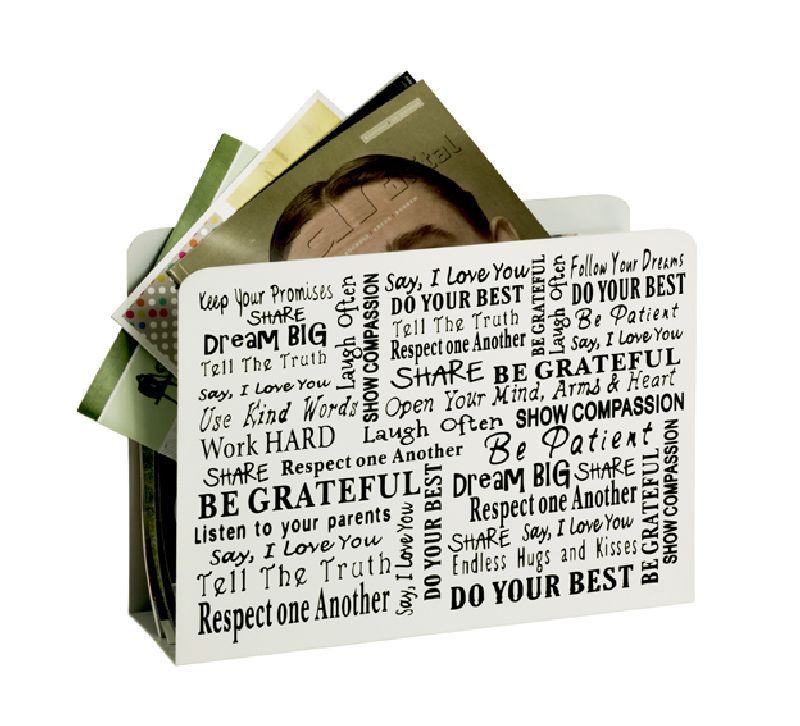 Keep Your Promises
SHARE
Dream BIG
Tell The Truth
Say, I Love You
Use Kind Words
Work HARD
Laugh Often
SHOW COMPASSION
Say, I Love You
DO YOUR BEST
Tell The Truth
Respect one Another
BE GRATEFUL
Laugh Often
Follow Your Dreams
DO YOUR BEST
Be Patient
Say, I Love You
SHARE BE GRATEFUL
Open Your Mind, Arms & Heart
Laugh Often SHOW COMPASSION
SHARE Respect one Another
Be Patient
BE GRATEFUL
Listen to your parents
Say, I Love You
Tell The Truth
Respect one Another
Say, I Love You
DO YOUR BEST
Dream BIG SHARE
Respect one Another
SHARE Say, I Love You
Endless Hugs and Kisses
DO YOUR BEST
BE GRATEFUL
SHOW COMPASSION